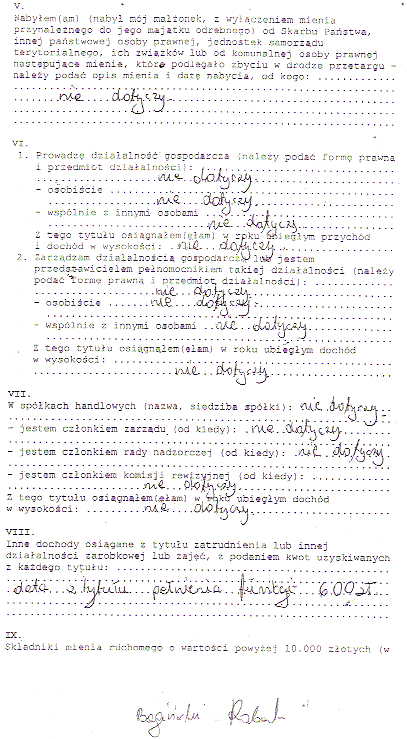 V.
Nabyłem(am) (nabył mój małżonek, z wyłączeniem mienia
przynależnego do jego majątku odrębnego) od Skarbu Państwa,
innej państwowej osoby prawnej, jednostek samorządu
terytorialnego, ich związków lub od komunalnej osoby prawnej
następujące mienie, które podlegało zbyciu w drodze przetargu -
należy podać opis mienia i datę nabycia, od kogo:
nie dotyczy
VI.
1. Prowadzę działalność gospodarczą (należy podać formę prawną
i przedmiot działalności):
nie dotyczy
- osobiście
nie dotyczy
- wspólnie z innymi osobami
nie dotyczy
Z tego tytułu osiągnąłem(ęłam) w roku ubiegłym przychód
i dochód w wysokości: nie dotyczy
2. Zarządzam działalnością gospodarczą lub jestem
przedstawicielem pełnomocnikiem takiej działalności (należy
podać formę prawną i przedmiot działalności):
nie dotyczy
- osobiście nie dotyczy
- wspólnie z innymi osobami nie dotyczy
Z tego tytułu osiągnąłem(ęłam) w roku ubiegłym dochód
w wysokości:
nie dotyczy
VII.
W spółkach handlowych (nazwa, siedziba spółki): nie dotyczy
- jestem członkiem zarządu (od kiedy): nie dotyczy
- jestem członkiem rady nadzorczej (od kiedy): nie dotyczy
- jestem członkiem komisji rewizyjnej (od kiedy):
nie dotyczy
Z tego tytułu osiągnąłem(ęłam) w roku ubiegłym dochód
w wysokości: nie dotyczy
VIII.
Inne dochody osiągane z tytułu zatrudnienia lub innej
działalności zarobkowej lub zajęć, z podaniem kwot uzyskiwanych
z każdego tytułu:
dieta z tytułu pełnienia funkcji 600 zł
IX.
Składniki mienia ruchomego o wartości powyżej 10.000 złotych (w
Robert